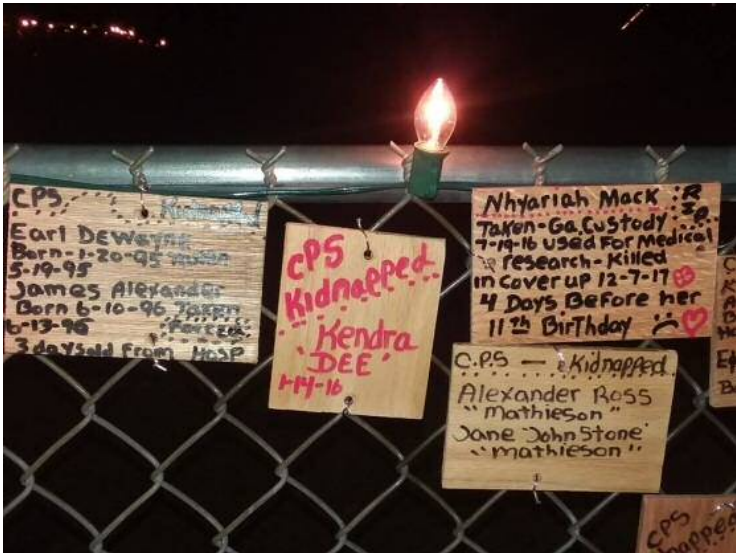 CPS Kidnapped
Earl DEWayne
Born-1-20-95 Taken
5-19-95
James Alexander
Born 6-10-96 Taken
6-13-96 Forced
3 days old From HOSP
CPS
Kidnapped
Kendra
"DEE"
1-14-16
Nhyariah Mack :R
I
Taken-Ga.Custody P
7-19-16 Used For Medical
research-Killed
in cover up 12-7-17
4 Days Before her
11th BirThday
C.P.S — Kidnapped
Alexander Ross
"Mathieson"
Jane JohnStone
"Mathieson"
CPS